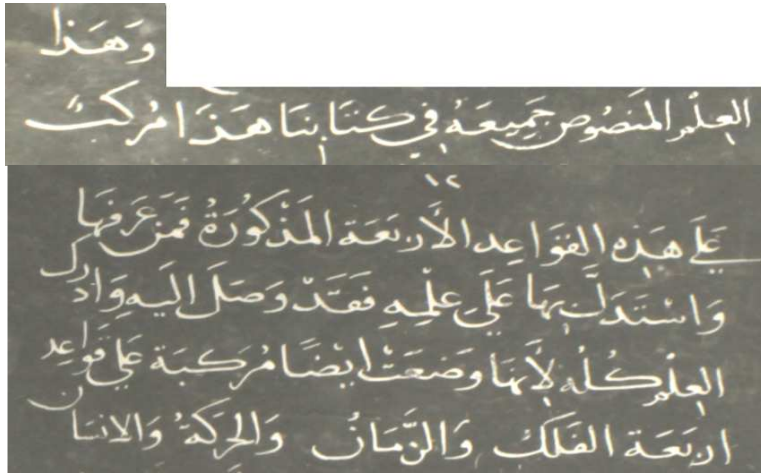 وَهَذا
العِلْمُ المَنصُوص جَمِيعَهُ في كتَابِنَا هَذَا مُرَكبٌ
١٢
عَلَى هَذِهِ القَوَاعِد الأَربَعَة المَذْكُورَةُ فَمَن عَرَفَهَا
وَاسْتَدَلَّ بِهَا عَلَى عِلْمِهِ فَقَدْ وَصَلَ إليَهِ وَادرَك
العِلْم كُلُه لِأَنهَا وَضَعَتْ ايْضًا مُرَكبَة عَلى قَوَاعِد
اربَعَة الفَلَكُ وَالزَّمَانُ وَالحَرَكَةُ وَالانسَان